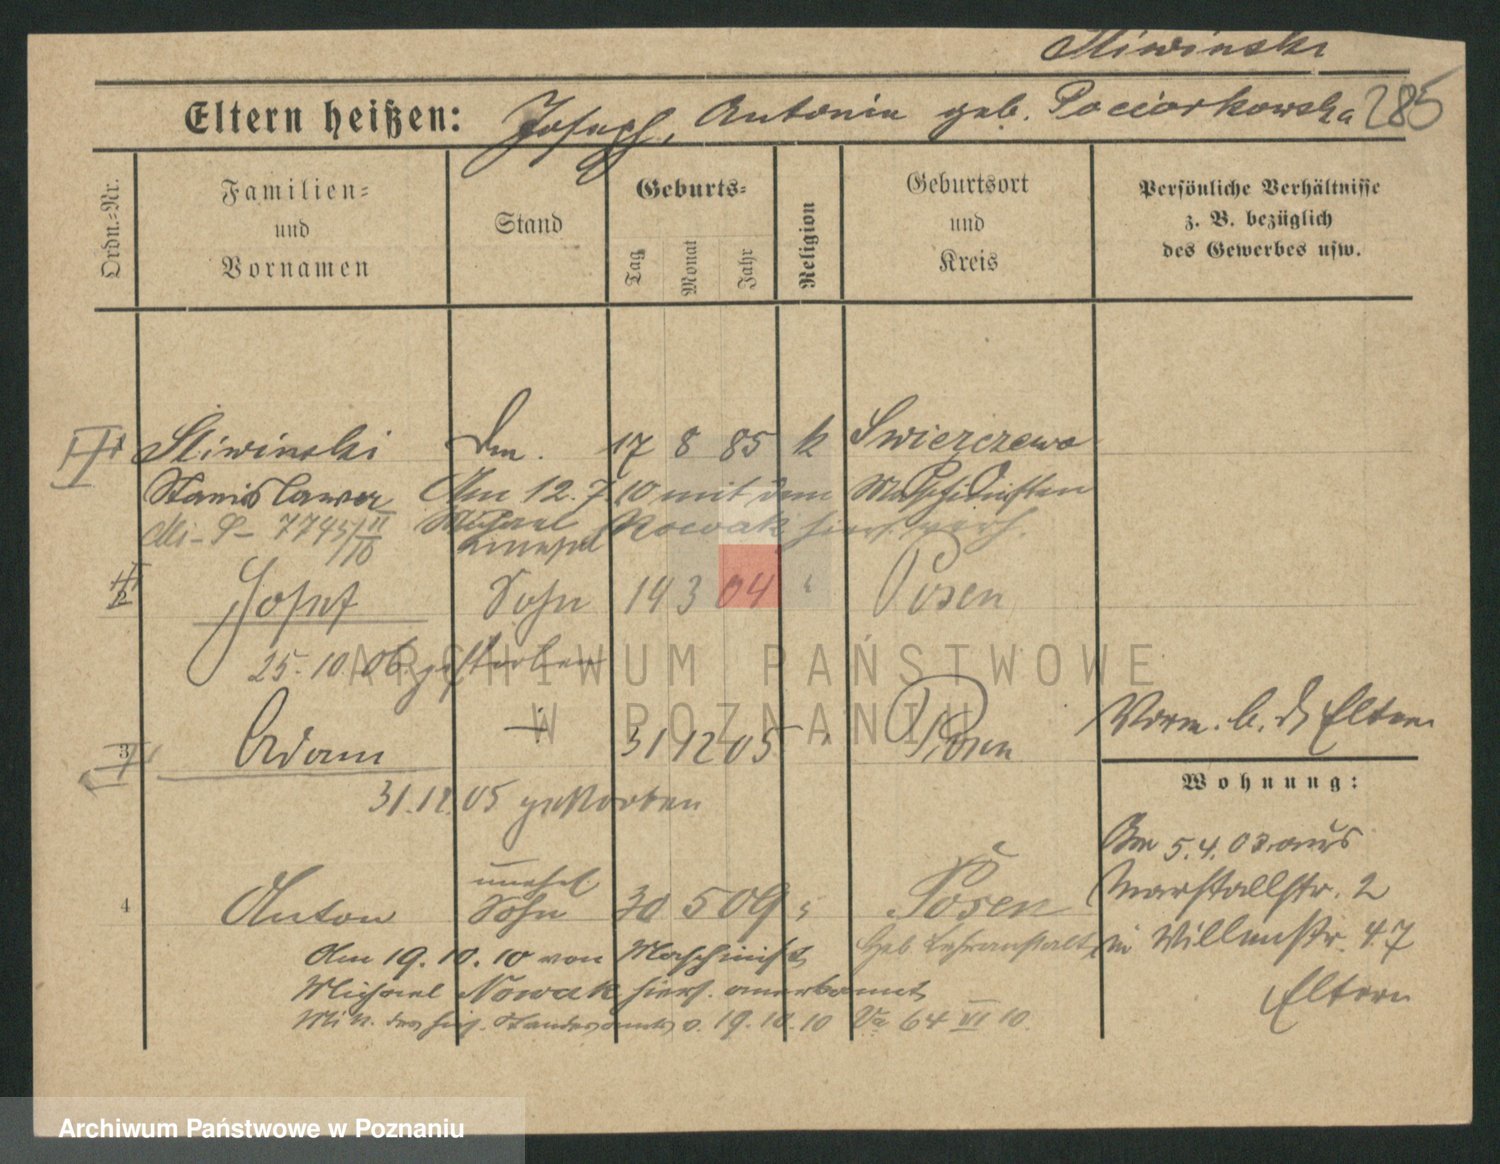 Sliwinski
Eltern heißen: Joseph, Antonie geb. Pociorkowska 285
Ordn.-Nr.
Familien-
und
Vornamen
Stand
Geburts-
Tag
Monat
Jahr
Religion
Geburtsort
und
Kreis
Persönliche Verhältnisse
z. B. bezüglich
des Gewerbes usw.
1 Sliwinski 17 8 85 k Swierczewo
Stanislawa Am 12. 7. 10 mit dem Maschinisten
Michael Nowak hiers. verh.
2 Josef unehel Sohn 14 3 04 " Posen
25. 10. 06 gestorben
3 Adam 31 12 05 " Posen
31. 12. 05 gestorben
Vorm. b. d. Eltern
Wohnung:
Am 5. 4. 03 aus
Marstallstr. 2
in 47
Eltern
4 Anton unehel. Sohn 30 5 09 " Posen
Geb. Lehranstalt
Am 19. 10. 10 von Maschinist
Michael Nowak hiers. anerkannt
Standesamts v. 19. 10. 10 64 VI 10.
ARCHIWUM PAŃSTWOWE
W POZNANIU
Archiwum Państwowe w Poznaniu